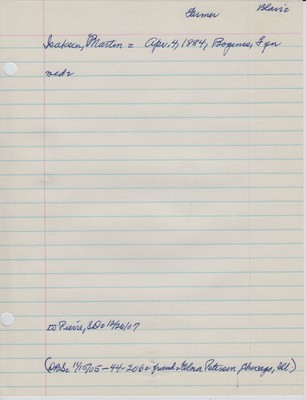 Farmer Blair
Isaksen, Martin = Apr. 4, 1884, Bogense, Fyn
wed=
to Pierre, S.D. 12/26/07
(DBS= 11/15/05-44-206= friend= Edna Petersen Chicago, Ill.)